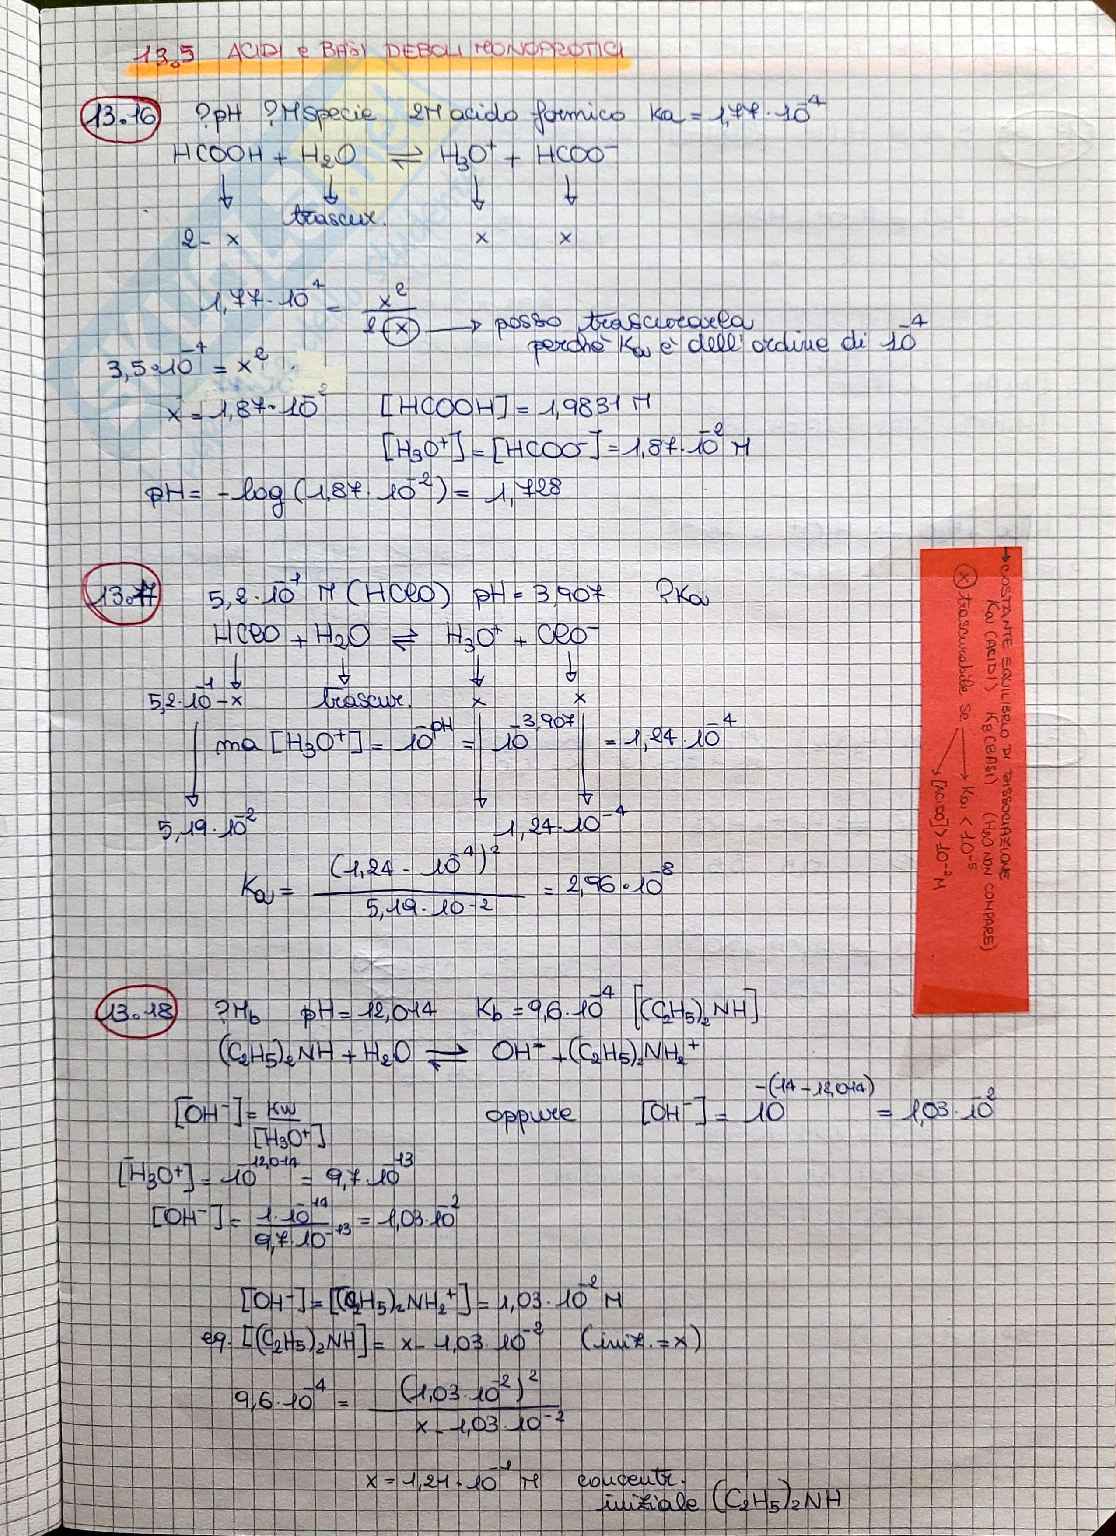 13.5 ACIDI e BASI DEBOLI MONOPROTICI
13.16 ?pH ?M specie 2M acido formico Ka = 1,77·10⁻⁴
HCOOH + H₂O ⇌ H₃O⁺ + HCOO⁻
↓ ↓ ↓ ↓
2-x trascur. x x
1,77·10⁻⁴ = x²/2-x → posso trascurarla
perché Ka è dell'ordine di 10⁻⁴
3,5·10⁻⁴ = x²
x = 1,87·10⁻² [HCOOH] = 1,9831 M
[H₃O⁺] = [HCOO⁻] = 1,87·10⁻² M
pH = -log(1,87·10⁻²) = 1,728
13.17 5,2·10⁻¹ M (HClO) pH = 3,907 ?Ka
HClO + H₂O ⇌ H₃O⁺ + ClO⁻
↓ ↓ ↓ ↓
5,2·10⁻¹-x trascur. x x
ma [H₃O⁺] = 10⁻ᵖᴴ = 10⁻³,⁹⁰⁷ = 1,24·10⁻⁴
5,19·10⁻² 1,24·10⁻⁴
Ka = (1,24·10⁻⁴)²/5,19·10⁻² = 2,96·10⁻⁸
→ COSTANTE EQUILIBRIO DI DISSOCIAZIONE
Ka (ACIDI) KB (BASI) (H₂O NON COMPARE)
x trascurabile se → Ka < 10⁻⁵
[ACIDO] > 10⁻² M
13.18 ?Mb pH = 12,014 Kb = 9,6·10⁻⁴ [(C₂H₅)₂NH]
(C₂H₅)₂NH + H₂O ⇌ OH⁻ + (C₂H₅)₂NH₂⁺
[OH⁻] = Kw/[H₃O⁺] oppure [OH⁻] = 10⁻⁽¹⁴⁻¹²,⁰¹⁴⁾ = 1,03·10⁻²
[H₃O⁺] = 10⁻¹²,⁰¹⁴ = 9,7·10⁻¹³
[OH⁻] = 1·10⁻¹⁴/9,7·10⁻¹³ = 1,03·10⁻²
[OH⁻] = [(C₂H₅)₂NH₂⁺] = 1,03·10⁻² M
eq. [(C₂H₅)₂NH] = x - 1,03·10⁻² (iniz. = x)
9,6·10⁻⁴ = (1,03·10⁻²)²/x - 1,03·10⁻²
x = 1,21·10⁻¹ M concentr.
iniziale (C₂H₅)₂NH